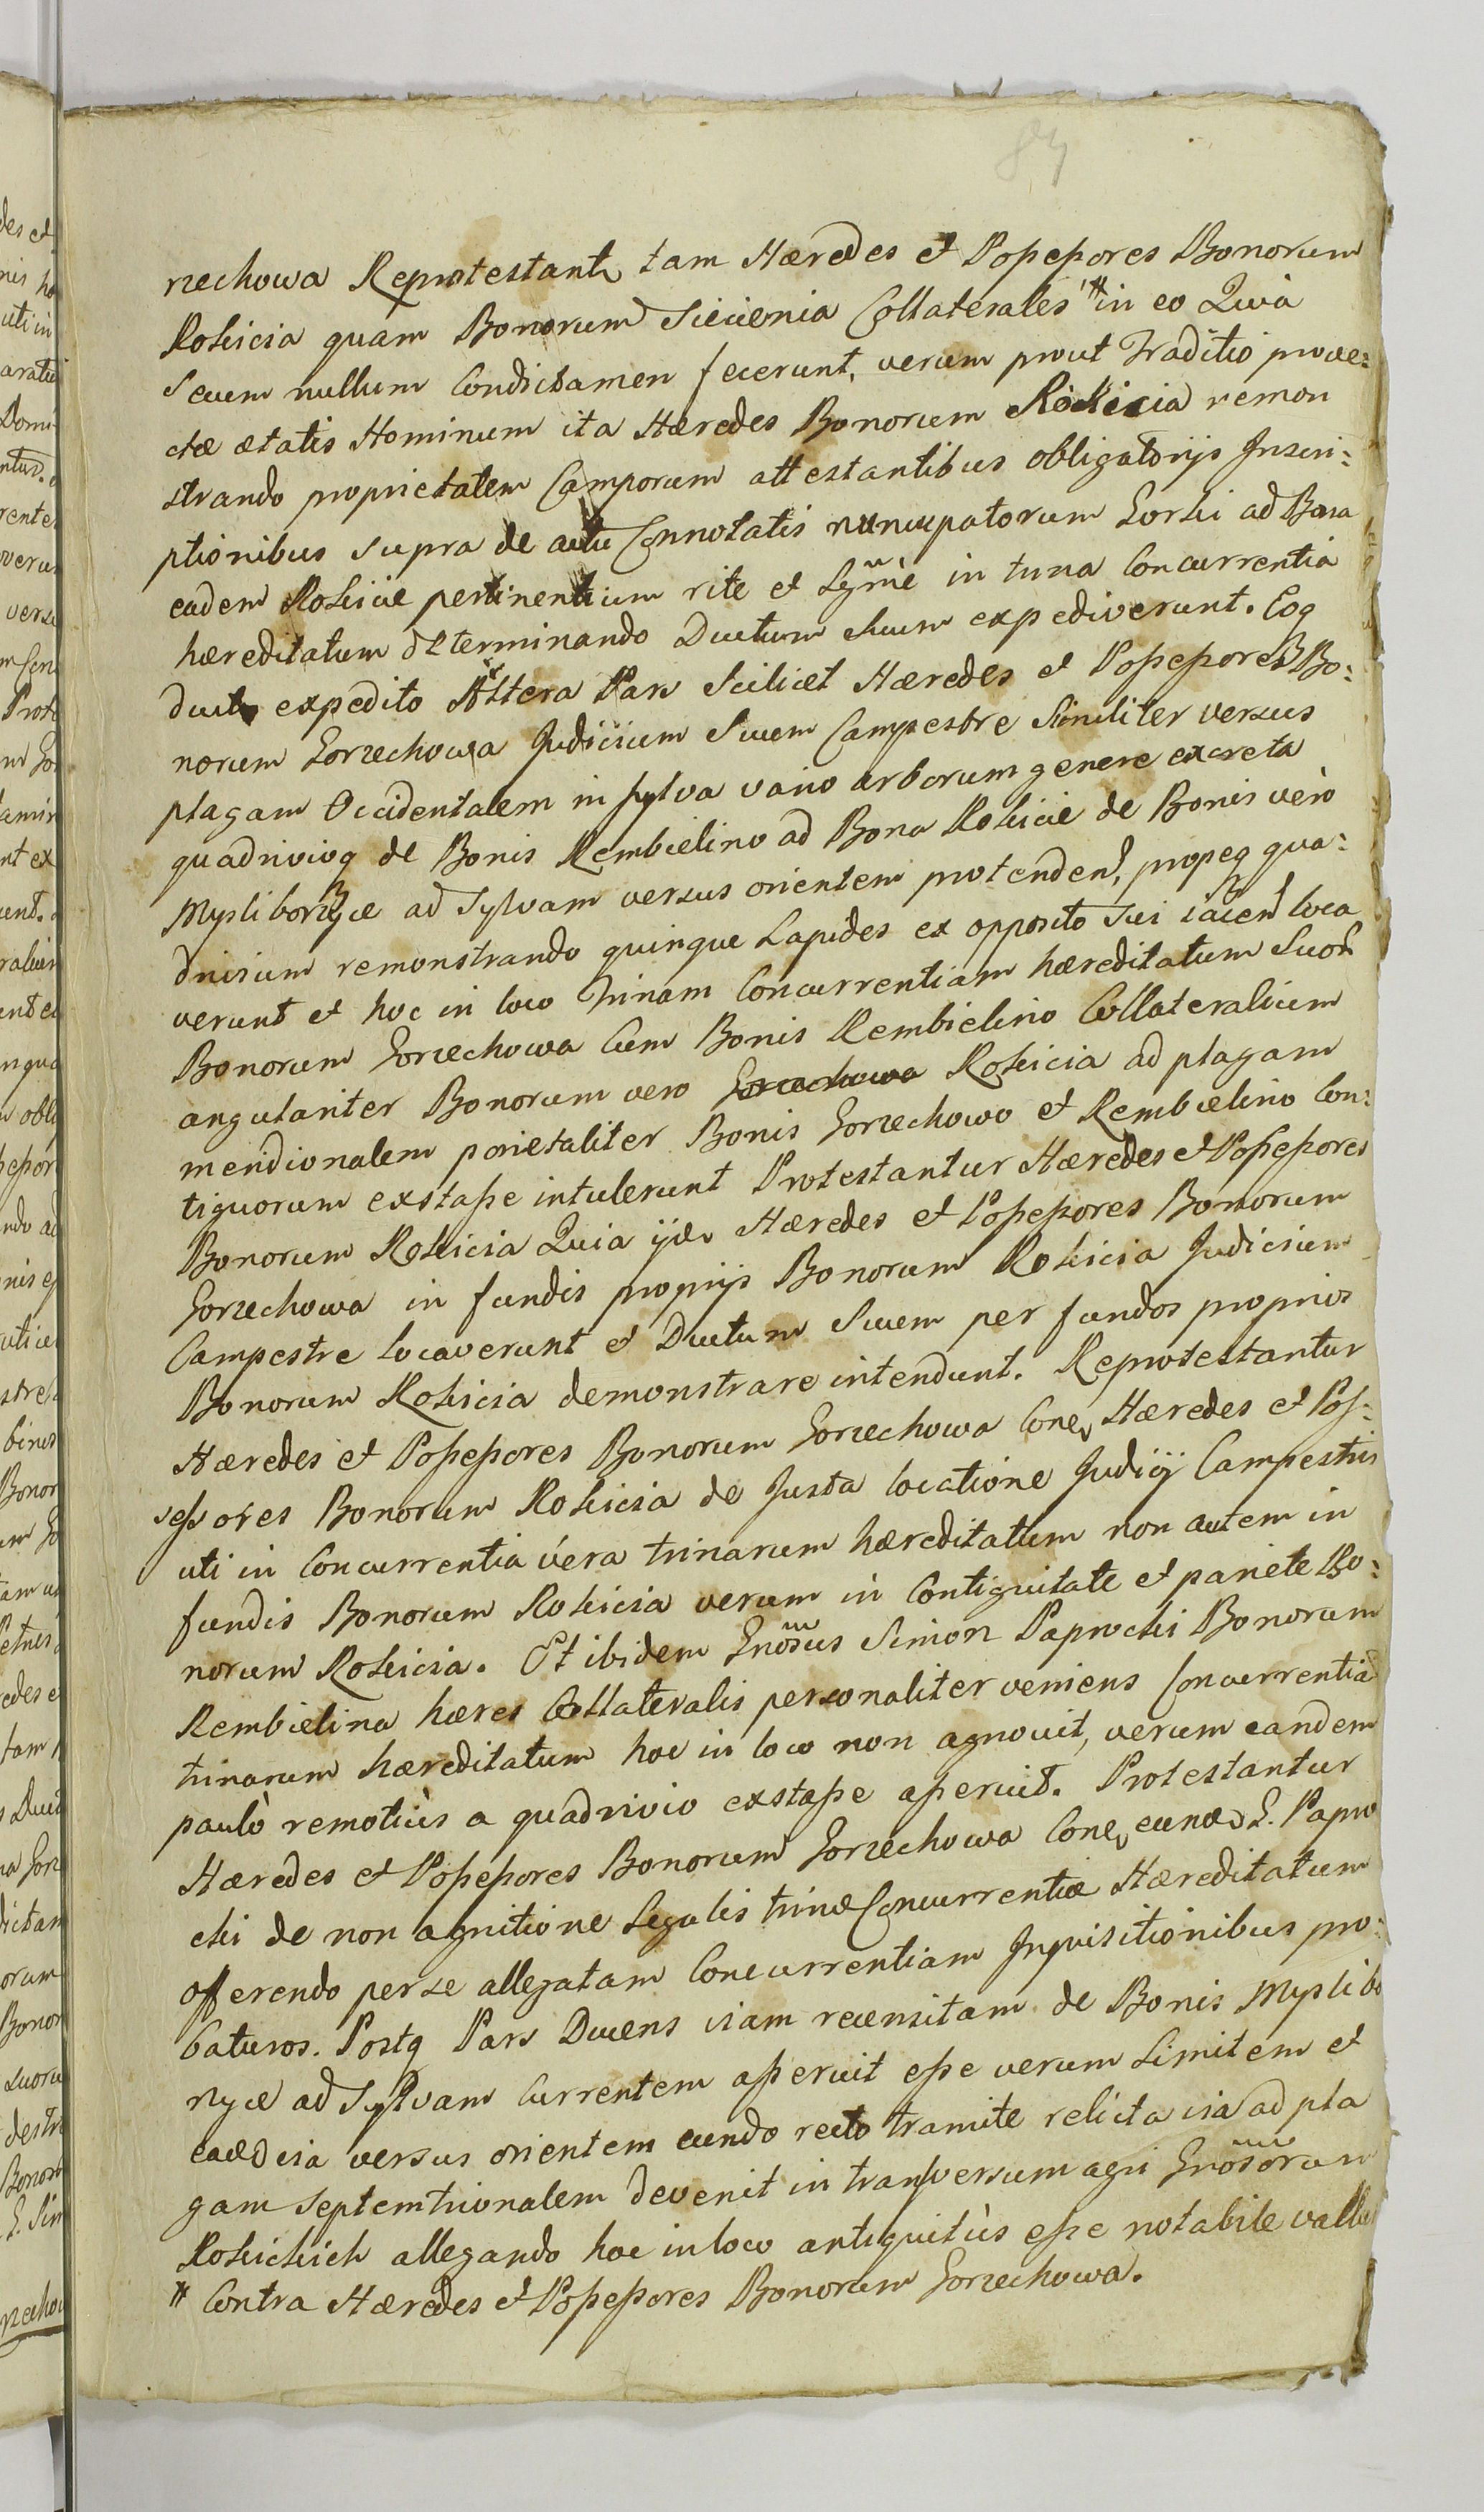 87
rzechowa Reprotestantr tam Hæredes et Possessores Bonorum
Rokicia quàm Bonorum Siecienia Collaterales # in eo Quià
Secum nullum Condictamen fecerunt, verum prout Traditio prove=
ctæ ætatis Hominum ita Hæredes Bonorum Rokicia remon
strando proprietatem Camporum attestantibus obligatorijs Inscri=
ptionibus supra de actu Connotatis nuncupatorum Gorki ad Bona
eadem Rokicie pertinentium rite et Lgtmè in trina Concurrentia
hæreditatum determinando Ductum suum expediverunt. Eoq
ductu expedito Altera Pars Scilicet Hæredes et Possessores Bo=
norum Gorzechowa Judicium Suum Campestre Similiter versus
plagam Occidentalem in sylva vario arborum genere excreta
quadrivioq de Bonis Rembielino ad Bona Rokicie de Bonis verò
Mysliborzyce ad Sylvam versus orientem protenden, propeq qua=
drivium remonstrando quinque Lapides ex opposito Sui iacen loca
verunt et hoc in loco trinam Concurrentiam hæreditatum Suor
Bonorum Gorzechowa Cum Bonis Rembielino Collateralium
angulariter Bonorum vero Gorzechowa Rokicia ad plagam
meridionalem parietaliter Bonis Gorzechowo et Rembielino Con=
tiguorum exstasse intulerunt Protestantur Hæredes et Possessores
Bonorum Rokicia Quia ijdem Hæredes et Possessores Bonorum
Gorzechowa in fundis proprijs Bonorum Rokicia Judicium
Campestre locaverunt et Ductum Suum per fundos proprios
Bonorum Rokicia demonstrare intendunt. Reprotestantur
Hæredes et Possessores Bonorum Gorzechowa Cone Hæredes et Pos=
sessores Bonorum Rokicia de Justa locatione Judicij Campestris
uti in Concurrentia vera trinarum hæreditatum non autem in
fundis Bonorum Rokicia verum in Contiguitate et pariete Bo=
norum Rokicia. Et ibidem Gnosus Simon Paprocki Bonorum
Rembielina hæres Collateralis personaliter veniens Concurrentia
trinarum hæreditatum hoc in loco non agnovit, verum eandem
paulò remotiùs a quadrivio exstasse asseruit. Protestantur
Hæredes et Possessores Bonorum Gorzechowa Cone eund G. Papro
cki de non agnitione Legalis trinæ Concurrentiæ Hæreditatum
offerendo per se allegatam Concurrentiam Inquisitionibus pro=
baturos. Postq Pars Ducens viam recensitam de Bonis Myslibo
rzyce ad Sylvam Currentem asseruit esse verum Limitem et
eaed via versus orientem eundo recto tramite relicta via ad pla
gam Septemtrionalem devenit in transversum agri Gnosorum
Rokickich allegando hoc in loco antiquitùs esse notabile vallu
# Contra Hæredes et Possessores Bonorum Gorzechowa.